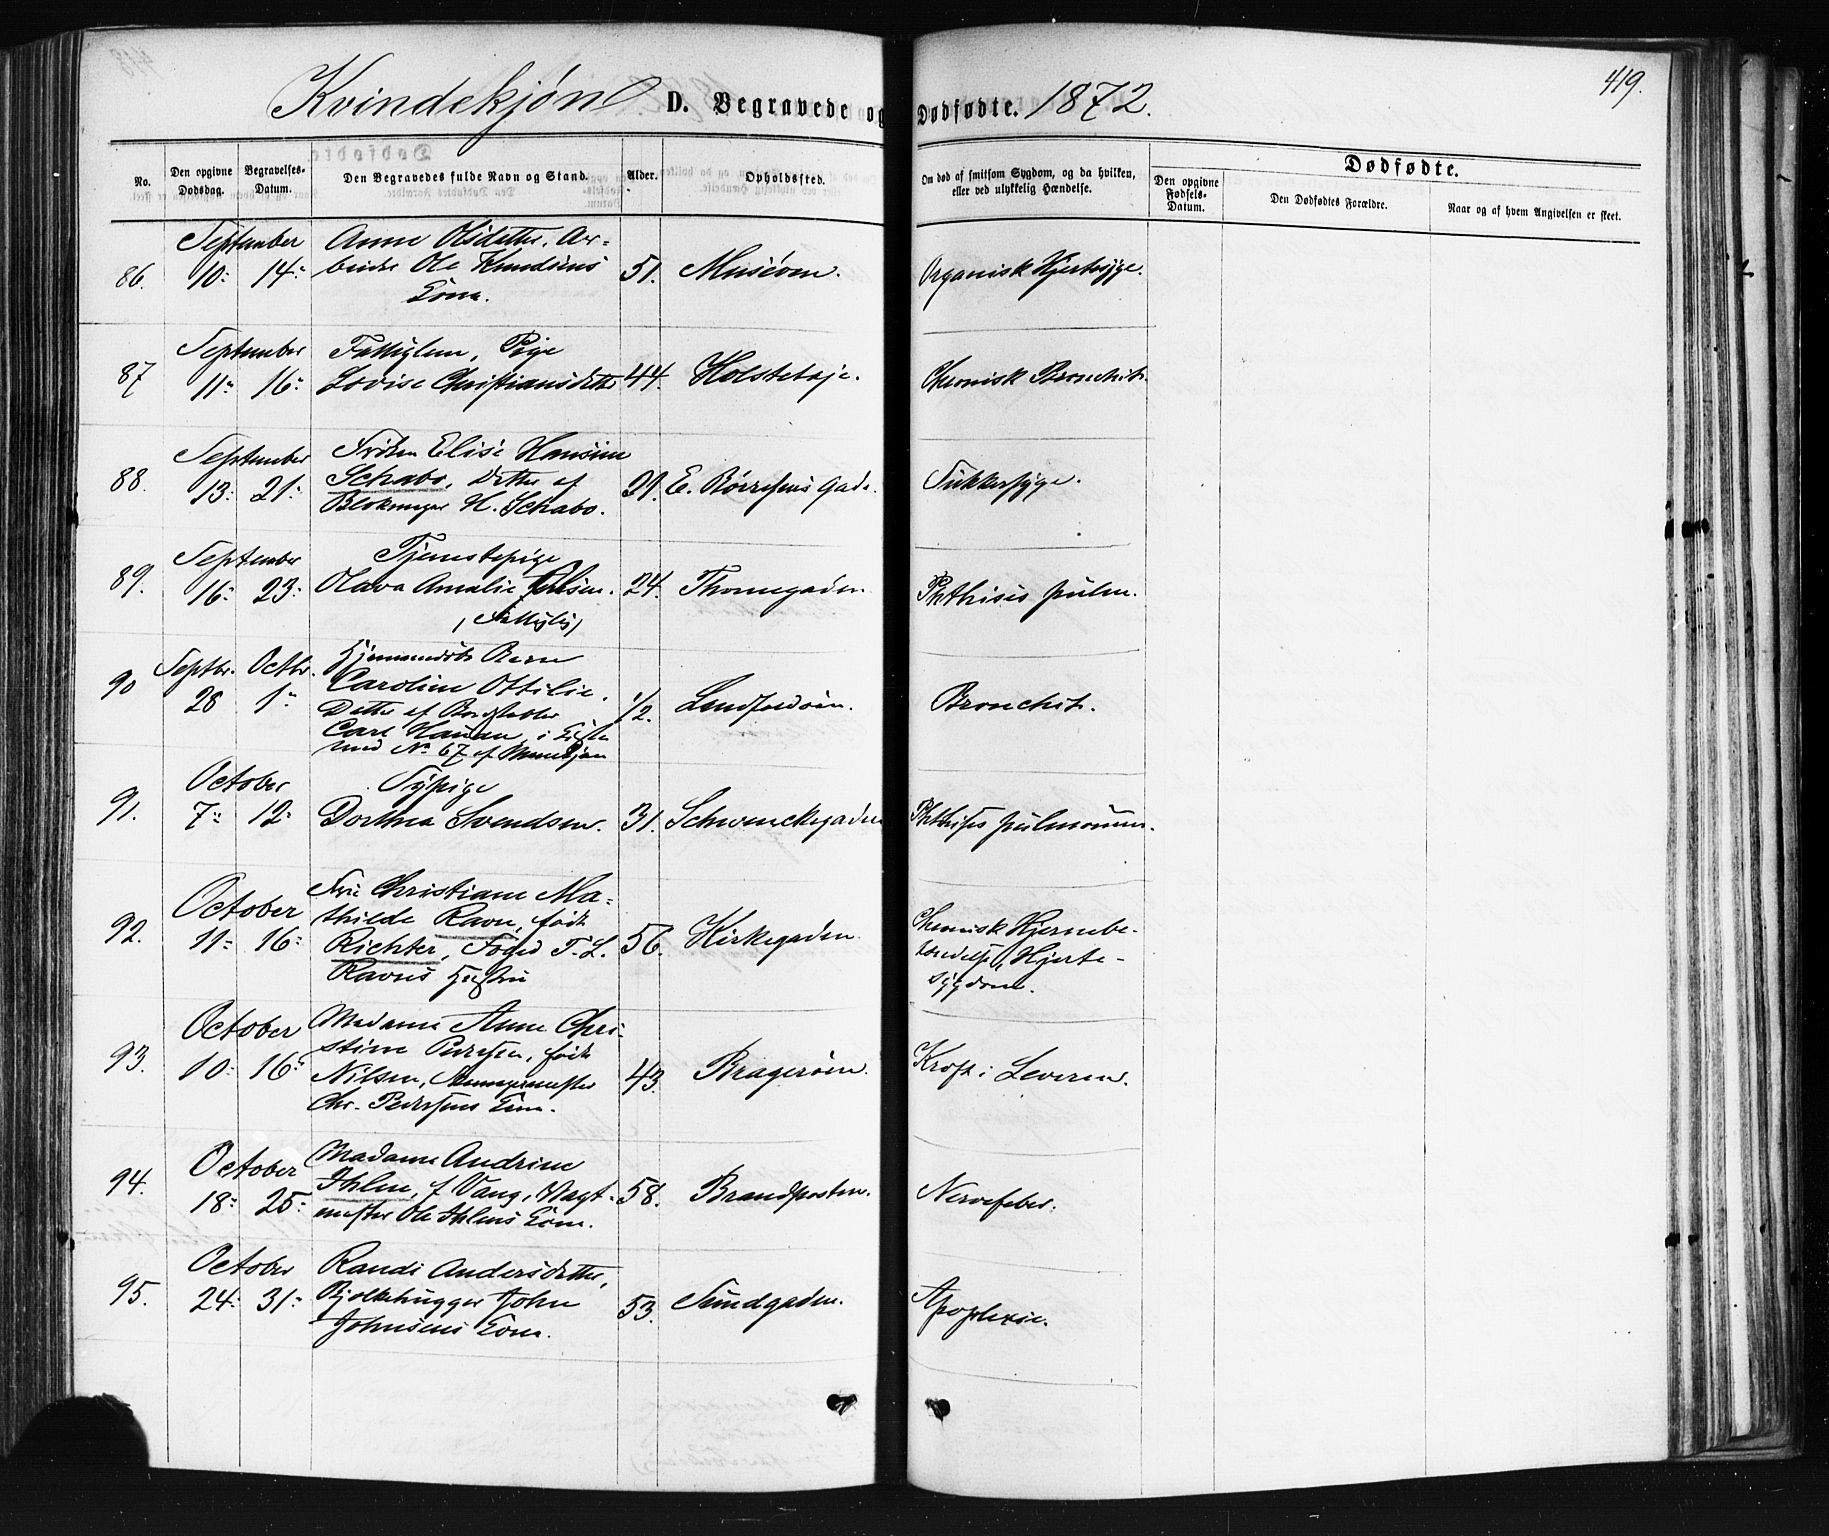 419.
Kvindekjøn D. Begravede og Dødfødte. 1872.
No.
Den opgivne Dødsdag.
Begravelses-Datum.
Den Begravedes fulde Navn og Stand.
Alder.
Opholdssted.
Om død af smitsom Sygdom, og da hvilken,
eller ved ulykkelig Hændelse.
Dødfødte.
Den opgivne Fødsels-Datum.
Den Dødfødtes Forældre.
Naar og af hvem Angivelsen er skeet.
September Anne Olsdatter, Ar-
86. 10 14 beider Ole Knudsens 51. Organisk Hjertesyge.
Kone.
September Fattiglem, Pige
87 11 16 Lovise Christiansdatter 44. Chronisk Bronchit.
September Frøken Elise Hansine
88. 13 21 Schabo, Datter af 29. E. Børresens Gade. Sukkersyge.
H. Schabo.
September Tjenestepige
89. 16 23 Olava Amalie 24. Thornegaden Phthisis pulm.
(Fattiglig)
Septbr. Octbr. Hjemmedøbt Barn
90 28 1 Caroline Ottilie, 1/2. Bronchit.
Datter af
Carl Hansen, i Kiste
med No 67 af Mandkjøn
October Sypige
91. 7 12 Dorthea Svendsen. 31. Schwenckegaden Phthisis pulmonum.
October Frue Christiane Ma-
92. 11 16 thilde Ravn, født 56. Kirkegaden Chronisk Hjernebe-
Richter, Foged F. L. tændelse, Hjerte-
Ravns Hustru sygdom.
October Madame Anne Chri-
93. 10 16 stine Pedersen, født 43. Bragerøen. Kræft i Leveren.
Nilsen,
Chr. Pedersens Kone.
October Madame Andrine
94. 18 25 Ihlen, f Vang, Vagt- 58. Brandposten. Nervefeber.
mester Ole Ihlens Kone.
October Randi Andersdatter,
95. 24 31 Bjelkehugger John 53. Sundgaden. Apoplexie.
Johnsens Kone.